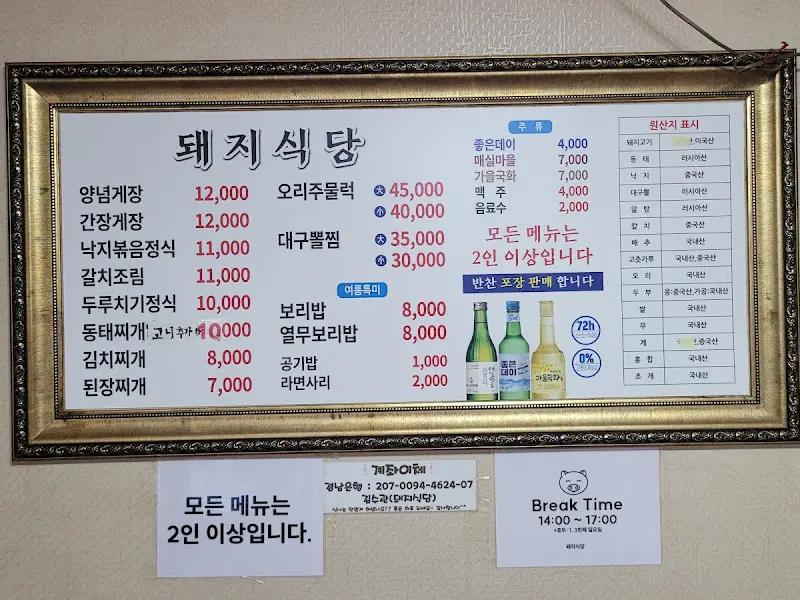 돼지식당
양념게장 12,000
간장게장 12,000
낙지볶음정식 11,000
갈치조림 11,000
두루치기정식 10,000
동태찌개 고니추가 10,000
김치찌개 8,000
된장찌개 7,000
오리주물럭 大 45,000
小 40,000
대구뽈찜 大 35,000
小 30,000
여름특미
보리밥 8,000
열무보리밥 8,000
공기밥 1,000
라면사리 2,000
주 류
좋은데이 4,000
매실마을 7,000
가을국화 7,000
맥 주 4,000
음료수 2,000
모든 메뉴는
2인 이상입니다
반찬 포장 판매 합니다
좋은데이
가을국화
72h
0%
원산지 표시
돼지고기 미국산
동 태 러시아산
낙 지 중국산
대구뽈 러시아산
알 탕 러시아산
갈 치 중국산
배 추 국내산
고춧가루 국내산,중국산
오 리 국내산
두 부 콩:중국산,가공:국내산
쌀 국내산
무 국내산
게 중국산
홍 합 국내산
조 개 국내산
모든 메뉴는
2인 이상입니다.
계좌이체
경남은행 : 207-0094-4624-07
김수관(돼지식당)
Break Time
14:00 ~ 17:00
*휴무: 1, 3번째 일요일
돼지식당